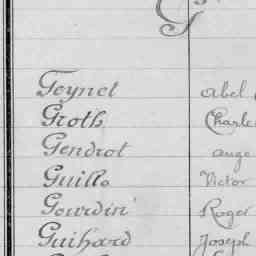 G
Feynet Abel
Groth Charle
Gendrot ange
Guillo Victor
Gourdin Roger
Guihard Joseph